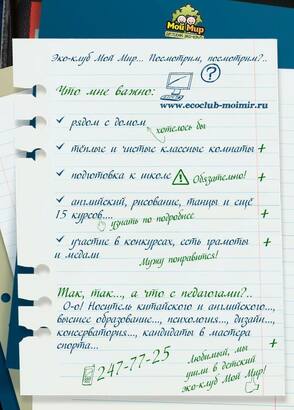 Мой Мир
Эко-клуб Мой Мир... Посмотрим, посмотрим?..
?
Что мне важно:
www.ecoclub-moimir.ru
рядом с домом
хотелось бы
тёплые и чистые классные комнаты +
подготовка к школе ! Обязательно! +
английский, рисование, танцы и ещё
15 курсов.... +
узнать по подробнее
участие в конкурсах, есть грамоты +
и медали
Мужу понравится!
Так, так..., а что с педагогами?..
О-о! Носитель китайского и английского...,
высшее образование..., психология..., дизайн...,
консерватория..., кандидаты в мастера
спорта... +
247-77-25
Любимый, мы
ушли в детский
эко-клуб Мой Мир!